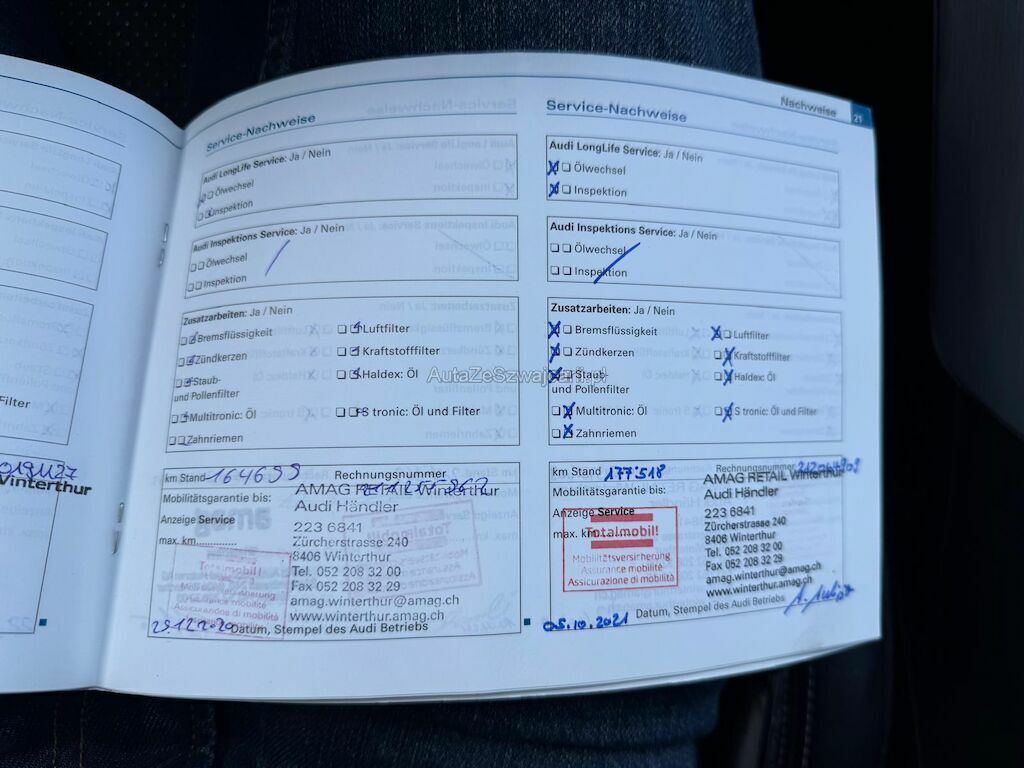 Filter
Winterthur
Service-Nachweise
Audi LongLife Service: Ja / Nein
Ölwechsel
Inspektion
Audi Inspektions Service: Ja / Nein
Ölwechsel
Inspektion
Zusatzarbeiten: Ja / Nein
Bremsflüssigkeit
Luftfilter
Zündkerzen
Kraftstofffilter
Staub-
und Pollenfilter
Haldex: Öl
Multitronic: Öl
S tronic: Öl und Filter
Zahnriemen
km Stand 164699 Rechnungsnummer
Mobilitätsgarantie bis:
AMAG RETAIL Winterthur
Audi Händler
Anzeige Service
223 6841
max. km
Zürcherstrasse 240
8406 Winterthur
Tel. 052 208 32 00
Fax 052 208 32 29
amag.winterthur@amag.ch
www.winterthur.amag.ch
Totalmobil!
Assurance mobilité
Assicurazione di mobilità
29.12.2020 Datum, Stempel des Audi Betriebs
Nachweise 21
Service-Nachweise
Audi LongLife Service: Ja / Nein
Ölwechsel
Inspektion
Audi Inspektions Service: Ja / Nein
Ölwechsel
Inspektion
Zusatzarbeiten: Ja / Nein
Bremsflüssigkeit
Luftfilter
Zündkerzen
Kraftstofffilter
Staub-
und Pollenfilter
Haldex: Öl
Multitronic: Öl
S tronic: Öl und Filter
Zahnriemen
km Stand 177'518 Rechnungsnummer
Mobilitätsgarantie bis:
AMAG RETAIL Winterthur
Audi Händler
Anzeige Service
223 6841
max. km
Zürcherstrasse 240
8406 Winterthur
Tel. 052 208 32 00
Fax 052 208 32 29
amag.winterthur@amag.ch
www.winterthur.amag.ch
Totalmobil!
Mobilitätsversicherung
Assurance mobilité
Assicurazione di mobilità
05.10.2021 Datum, Stempel des Audi Betriebs
AutaZeSzwajcarii.pl